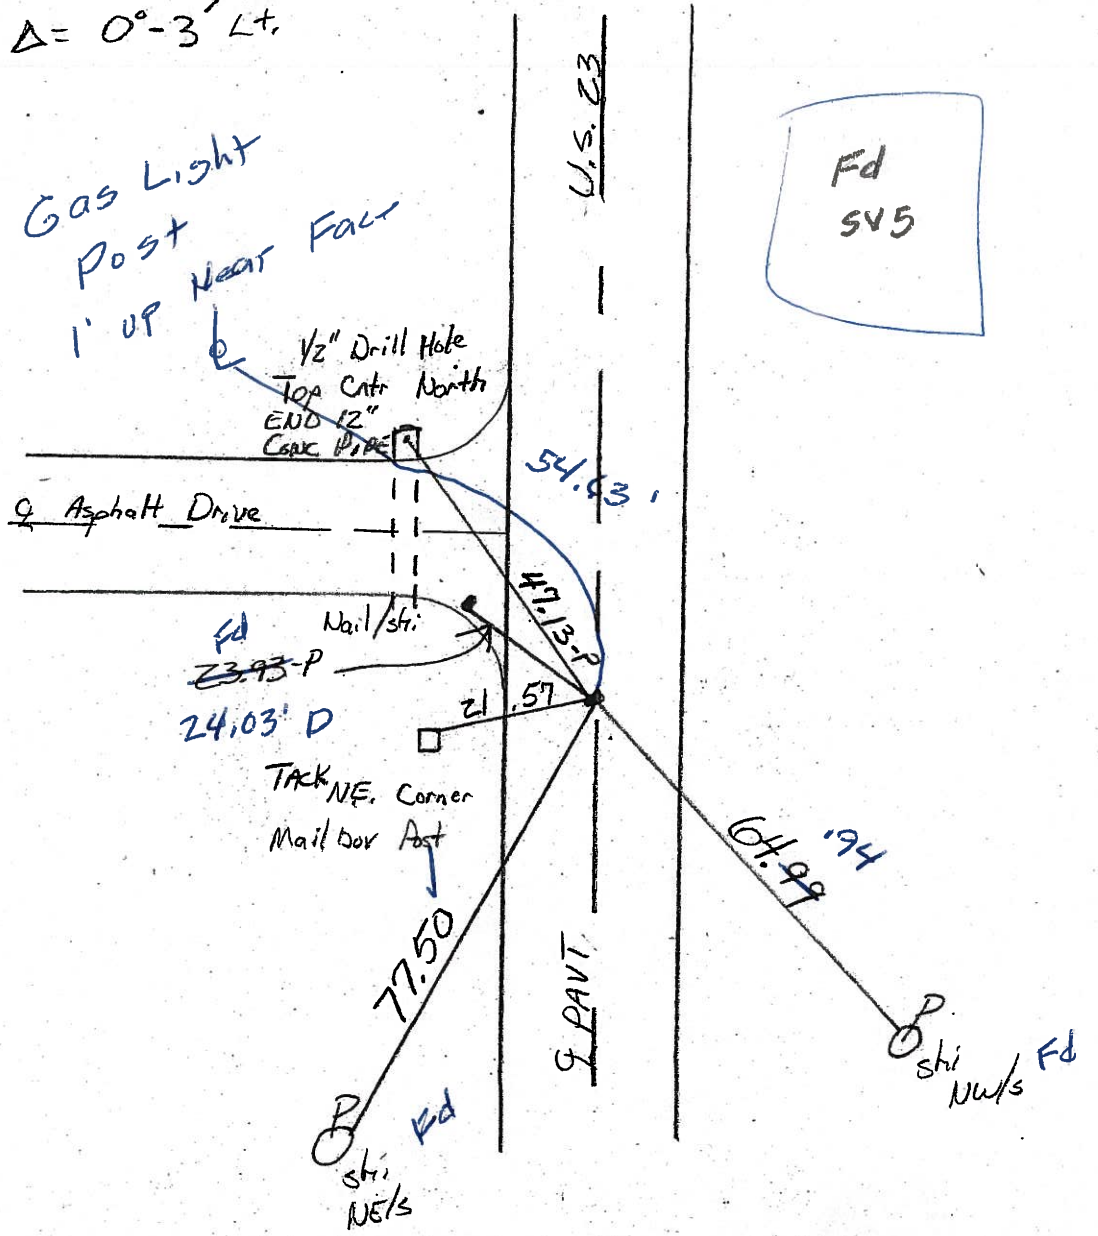 Δ= 0°-3' Lt.
U.S. 23
Fd
SV5
Gas Light
Post
1' UP Near Face
1/2" Drill Hole
Top Cntr North
END 12"
Conc Pipe
℄ Asphalt Drive
47.13-P
Nail/shi
Fd
23.93-P
24.03' D
21.57
TACK N.E. Corner
Mail Box Post
64.99 .94
77.50
℄ PAVT.
P
shi
NW/s Fd
P
Fd
shi
NE/s